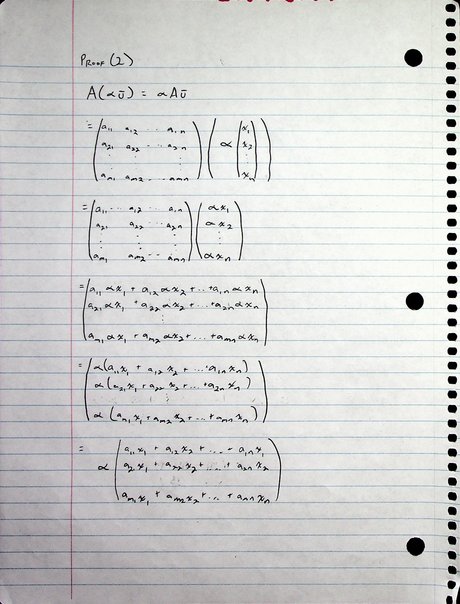 Proof (2)
A(αū) = αAū
= ( a₁₁ a₁₂ ... a₁n ) ( α ( x₁ ) )
( a₂₁ a₂₂ ... a₂n ) ( x₂ )
⋮ ⋮ ⋮
( am₁ am₂ ... amn ) ( xn )
= ( a₁₁ ... a₁₂ ... a₁n ) ( αx₁ )
( a₂₁ a₂₂ ... a₂n ) ( αx₂ )
⋮ ⋮ ⋮ ⋮
( am₁ am₂ ... amn ) ( αxn )
= ( a₁₁αx₁ + a₁₂αx₂ + ... + a₁nαxn )
( a₂₁αx₁ + a₂₂αx₂ + ... + a₂nαxn )
( am₁αx₁ + am₂αx₂ + ... + amnαxn )
= ( α(a₁₁x₁ + a₁₂x₂ + ... a₁nxn) )
( α(a₂₁x₁ + a₂₂x₂ + ... + a₂nxn) )
( α(am₁x₁ + am₂x₂ + ... + amnxn) )
=
α ( a₁₁x₁ + a₁₂x₂ + ... - a₁nx₁ )
( a₂x₁ + a₂₂x₂ + ... + a₂nx₂ )
( am₁x₁ + am₂x₂ + ... + amnxn )